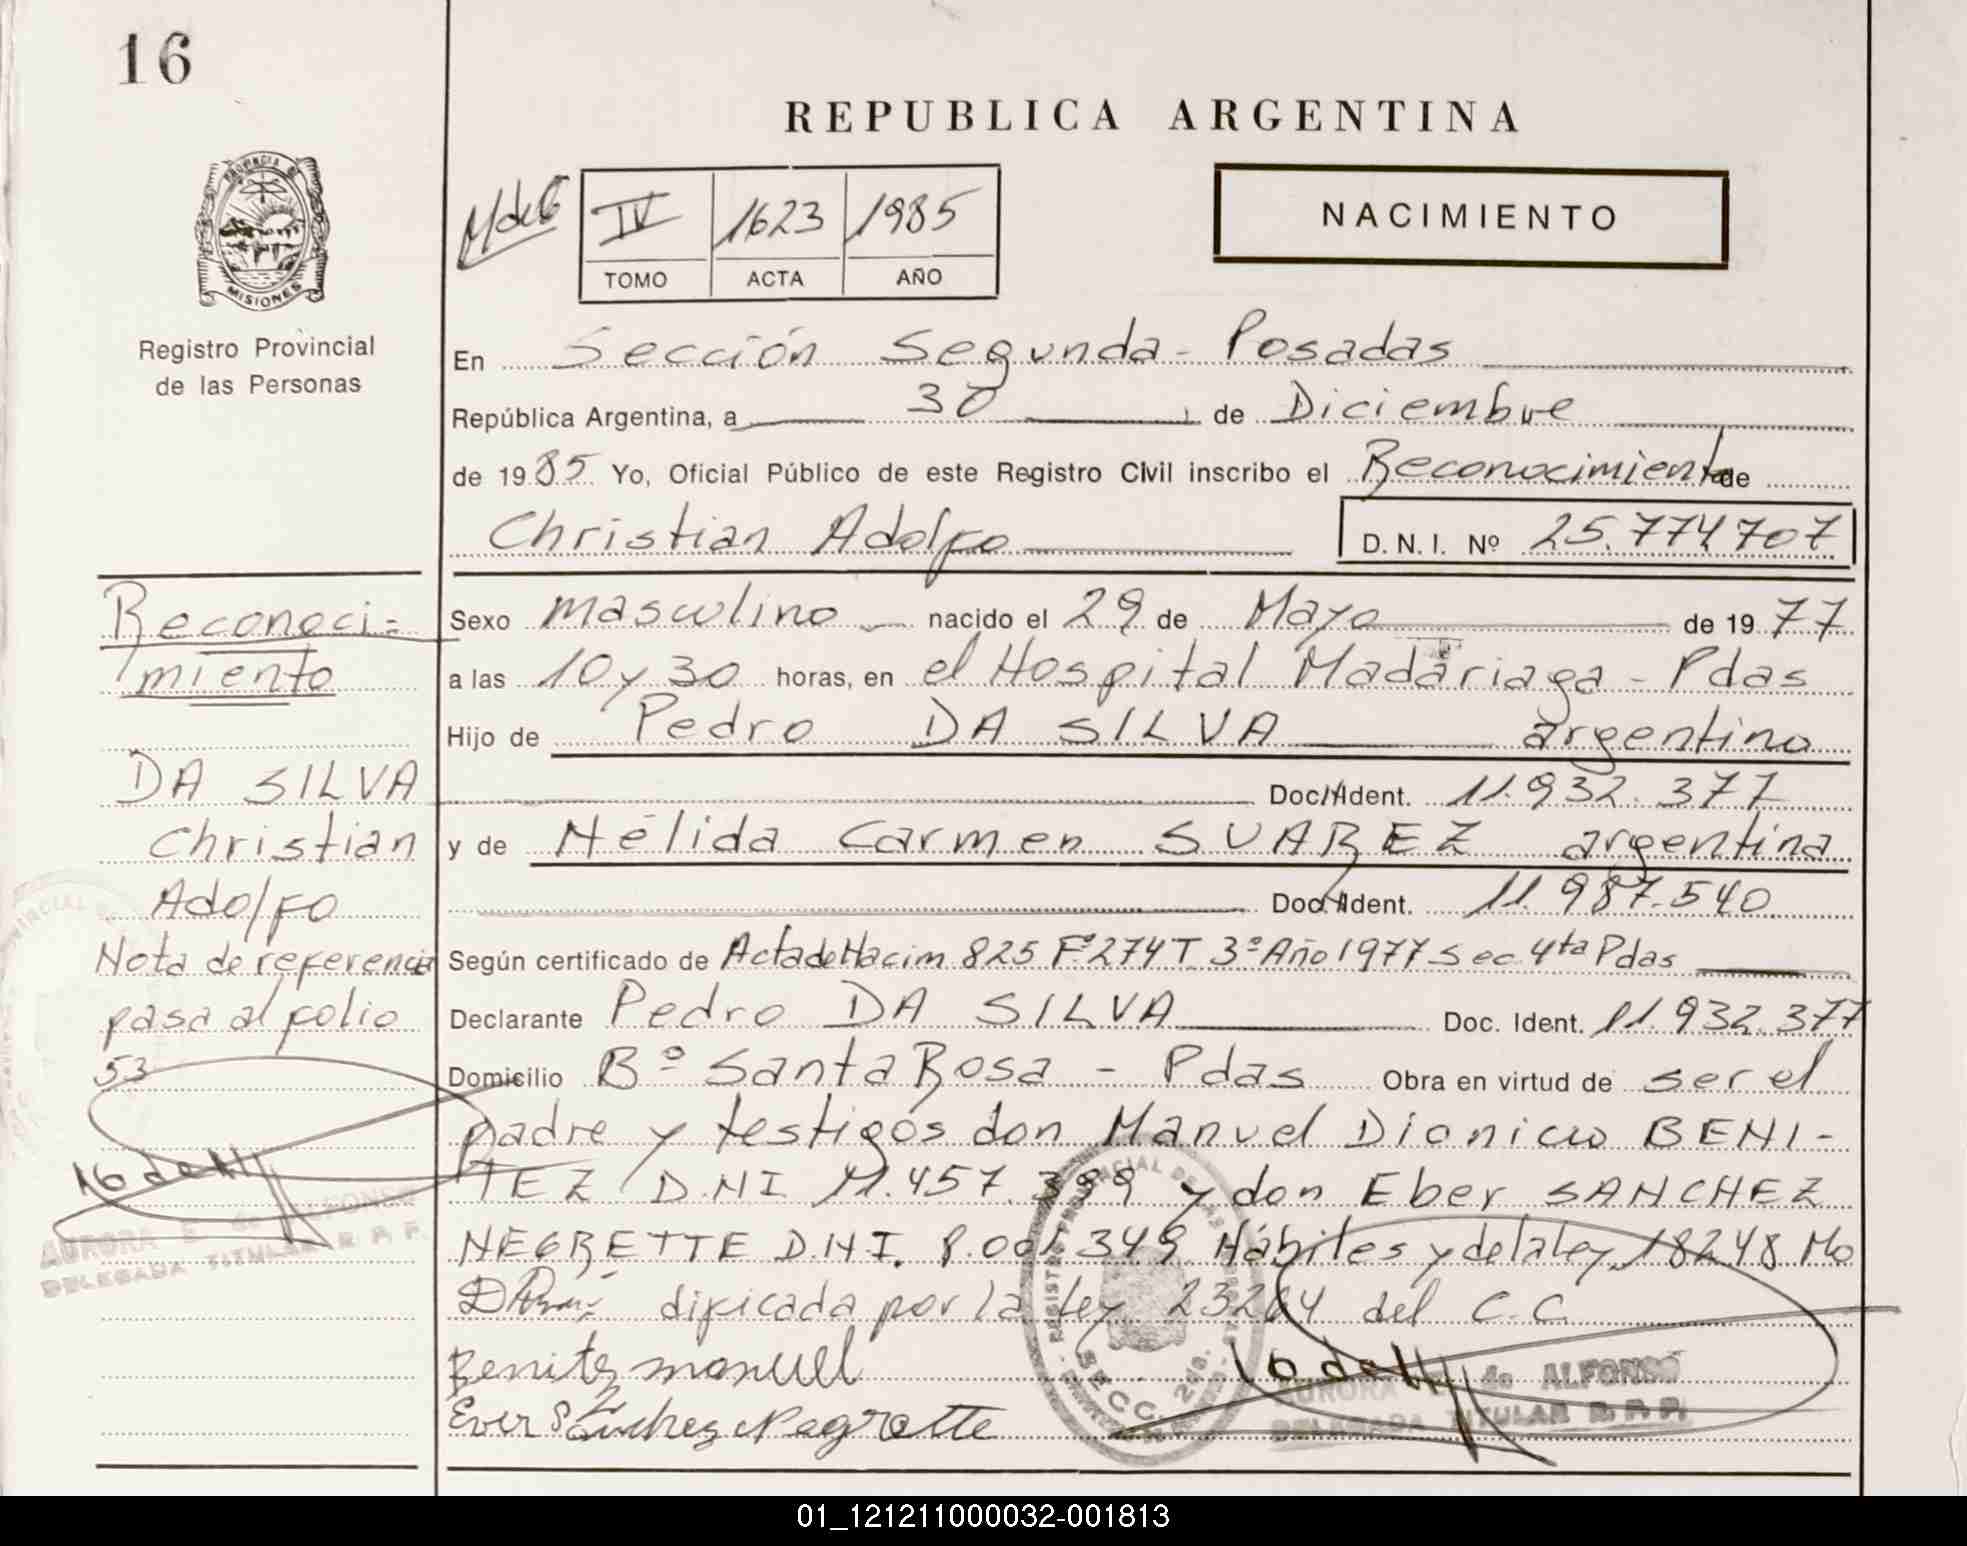 16
REPUBLICA ARGENTINA
PROVINCIA DE
MISIONES
Registro Provincial
de las Personas
IV 1623 1985
TOMO ACTA AÑO
NACIMIENTO
En Sección Segunda - Posadas
República Argentina, a 30 de Diciembre
de 1985 Yo, Oficial Público de este Registro Civil inscribo el Reconocimiento de
Christian Adolfo D.N.I. Nº 25.774707
Reconoci-
miento
DA SILVA
Christian
Adolfo
Nota de referencia
pasa al folio
53
AURORA E. de ALFONSO
DELEGADA TITULAR R. P. P.
Sexo masculino nacido el 29 de Mayo de 1977
a las 10 y 30 horas, en el Hospital Madariaga - Pdas
Hijo de Pedro DA SILVA argentino
Doc. Ident. 11.932.377
y de Nélida Carmen SUAREZ argentina
Doc. Ident. 11.987.540
Según certificado de Acta de Nacim 825 Fº 274 T 3º Año 1977 Sec 4ta Pdas
Declarante Pedro DA SILVA Doc. Ident. 11.932.377
Domicilio Bº Santa Rosa - Pdas Obra en virtud de ser el
padre y testigos don Manuel Dionicio BENI-
TEZ D.NI 11.457.399 y don Eber SANCHEZ
NEGRETTE D.N.I. 8.001.349 Hábiles y de la ley 18248 Mo
dificada por la Ley 23264 del C.C.
Benitez manuel
Ever Sanchez Negrette
REGISTRO PROVINCIAL DE LAS PERSONAS
SECC. 2da.
AURORA E. de ALFONSO
DELEGADA TITULAR R. P. P.
01_121211000032-001813